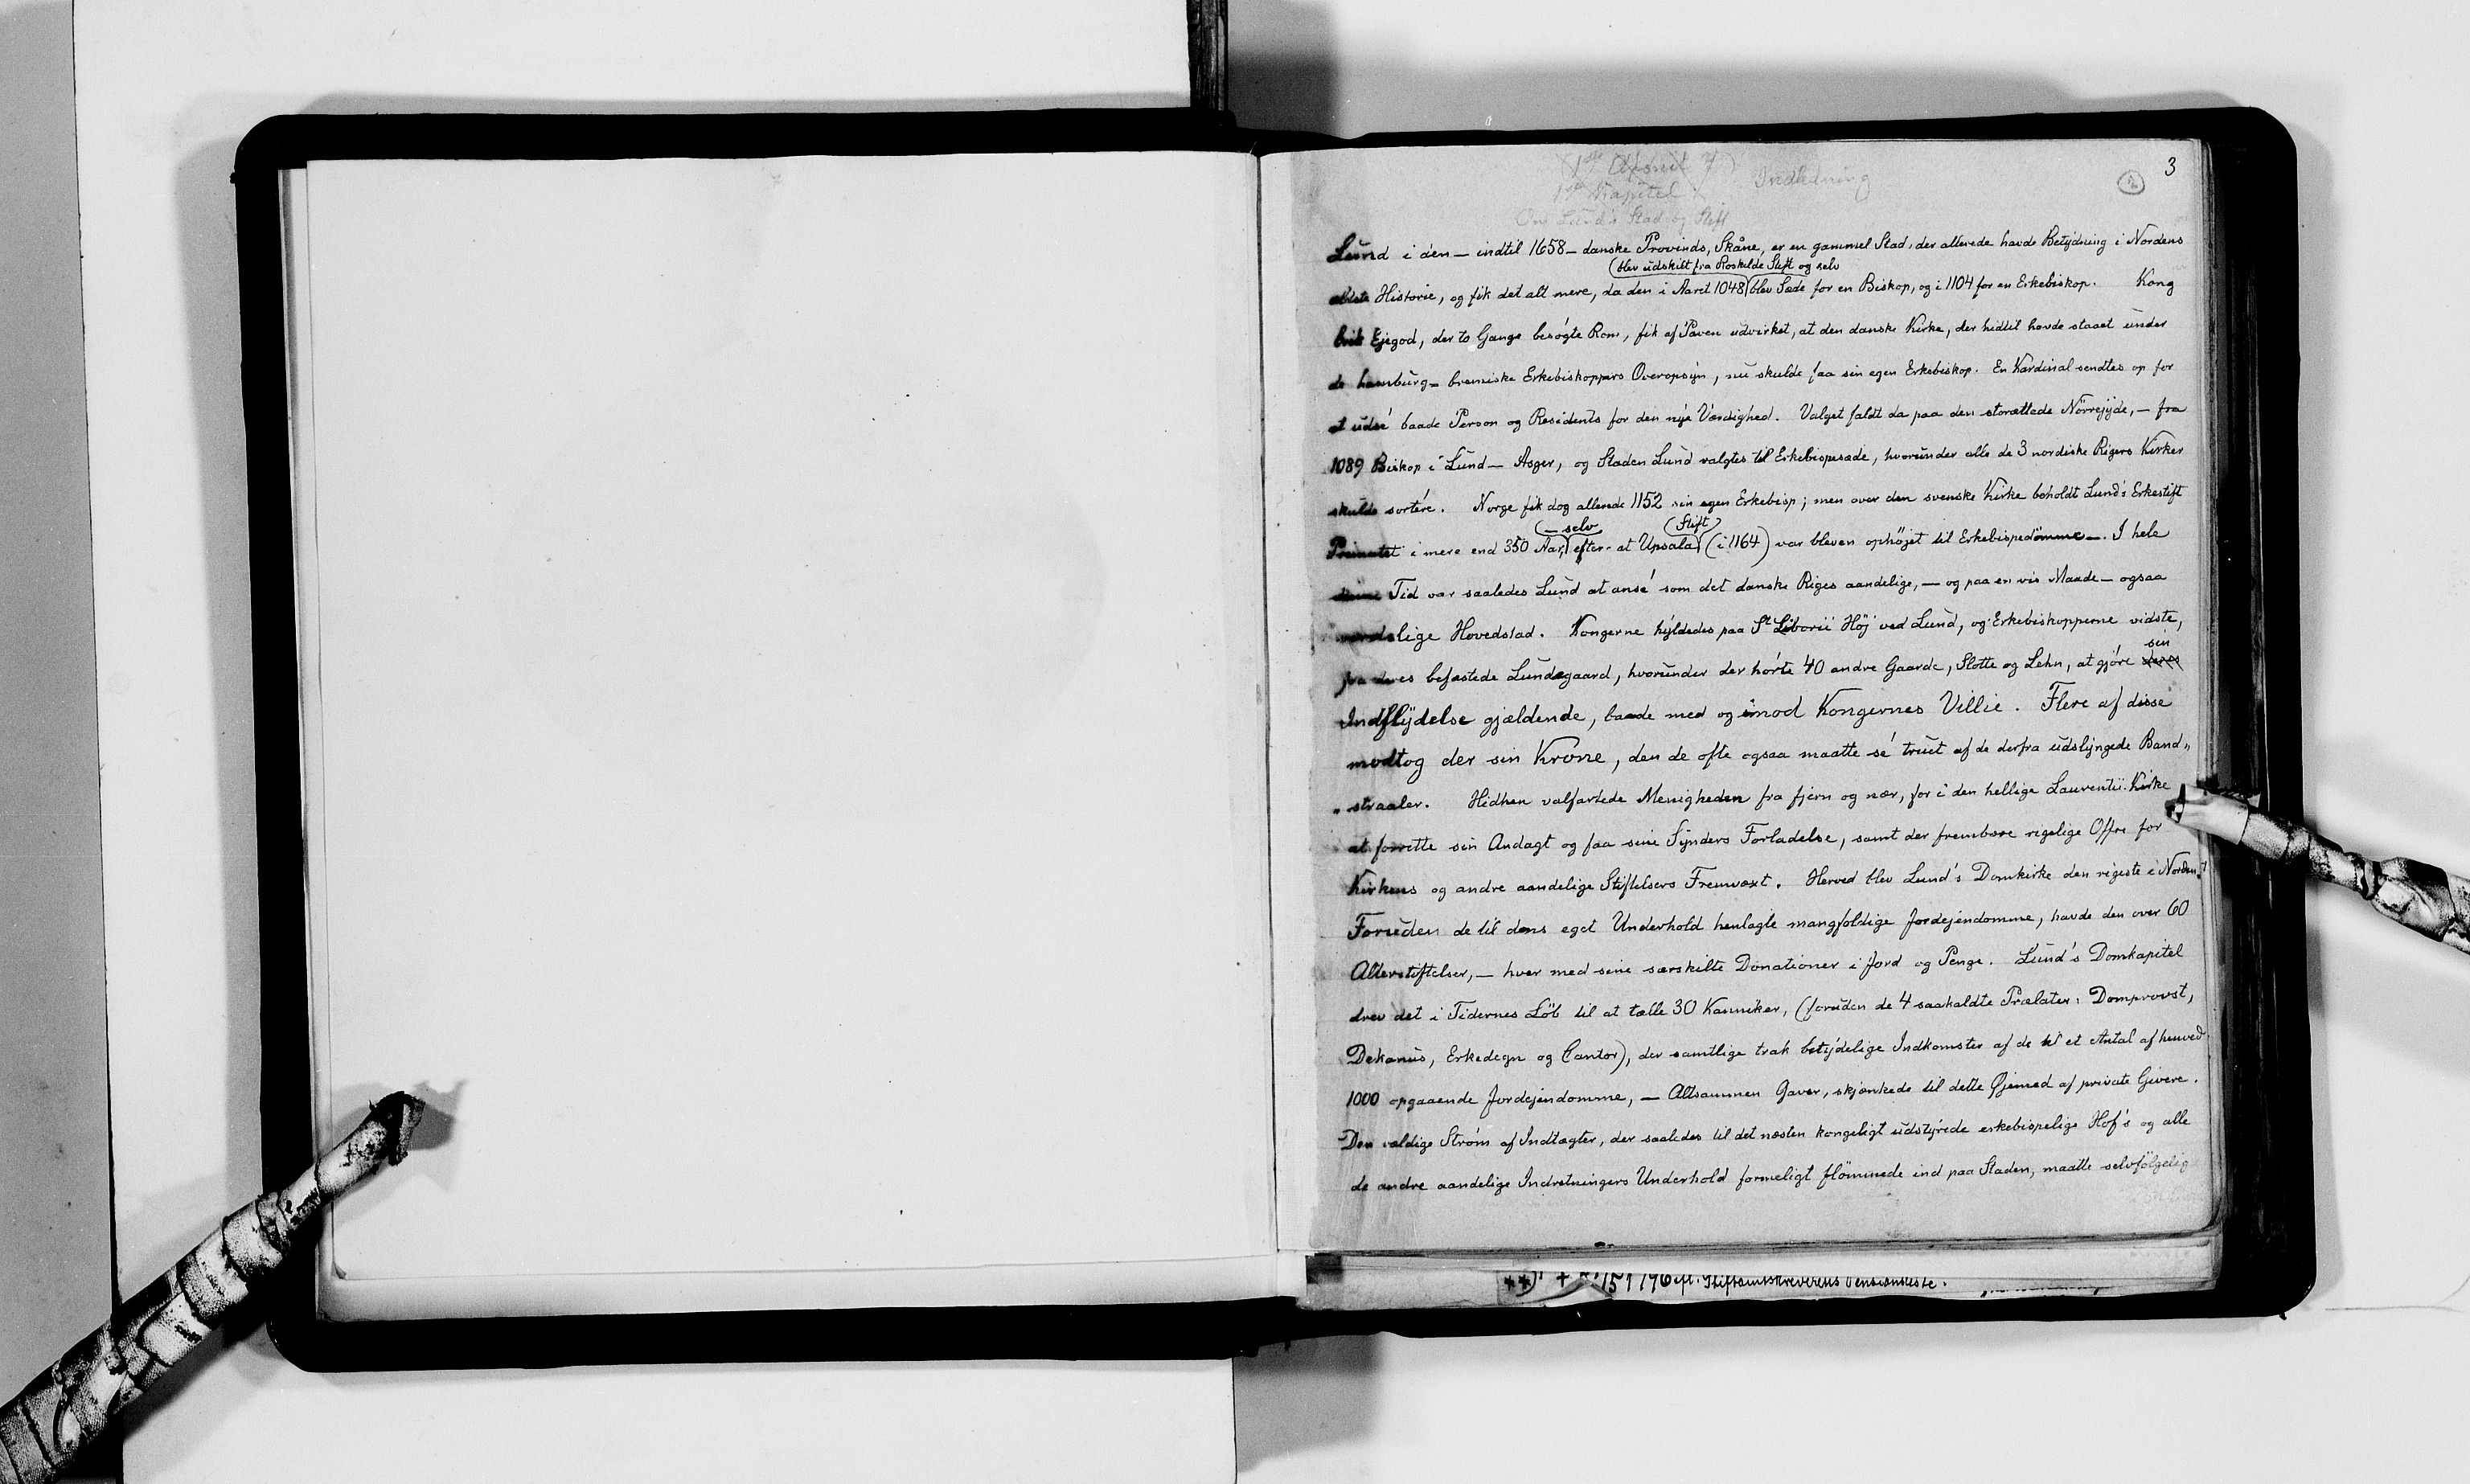 3
1ste Afsnit
1ste Kapitel Indledning
Om Lund's Stad og Stift
Lund i den — indtil 1658 — danske Provinds, Skåne, er en gammel Stad, der allerede havde Betydning i Nordens
(blev udskilt fra Roskilde Stift og selv
ældste Historie, og fik det alt mere, da den i Aaret 1048 blev Sæde for en Biskop, og i 1104 for en Erkebiskop. Kong
Erik Ejegod, der to Gange besøgte Rom, fik af Paven udvirket, at den danske Kirke, der hidtil havde staaet under
de hamburg-bremiske Erkebiskoppers Overopsyn, nu skulde faa sin egen Erkebiskop. En Kardinal sendtes op for
at udsé baade Person og Residents for den nye Værdighed. Valget faldt da paa den storættede Nörrejyde, — fra
1089 Biskop i Lund — Asger, og Staden Lund valgtes til Erkebispesæde, hvorunder alle de 3 nordiske Rigers Kirker
skulde sortére. Norge fik dog allerede 1152 sin egen Erkebisp; men over den svenske Kirke beholdt Lund's Erkestift
(— selv (Stift)
Primatet i mere end 350 Aar, efter at Upsala (i 1164) var bleven ophöjet til Erkebispedömme —. I hele
denne Tid var saaledes Lund at ansé som det danske Riges aandelige, — og paa en vis Maade — ogsaa
verdslige Hovedstad. Kongerne hyldedes paa St Liborii Höj ved Lund, og Erkebiskopperne vidste,
sin
fra deres befæstede Lundegaard, hvorunder der hörte 40 andre Gaarde, Slotte og Lehn, at gjöre deres
Indflydelse gjældende, baade med og imod Kongernes Villie. Flere af disse
modtog der sin Krone, den de ofte ogsaa maatte sé truet af de derfra udslyngede Band„
„straaler. Hidhen valfartede Menigheden fra fjern og nær, for i den hellige Laurentii Kirke
at forrette sin Andagt og faa sine Synders Forladelse, samt der frembære rigelige Offre for
Kirkens og andre aandelige Stiftelsers Fremvæxt. Herved blev Lund's Domkirke den rigeste i Norden.
Foruden de til dens eget Underhold henlagte mangfoldige Jordejendomme, havde den over 60
Alterstiftelser, — hver med sine særskilte Donationer i Jord og Penge. Lund's Domkapitel
drev det i Tidernes Löb til at tælle 30 Kanniker, (foruden de 4 saakaldte Prælater: Domprovst,
Dekanus, Erkedegn og Cantor), der samtlige trak betydelige Indkomster af de til et Antal af henved
1000 opgaaende Jordejendomme, — Altsammen Gaver, skjænkede til dette Øjemed af private Givere.
Den vældige Ström af Indtægter, der saaledes til det næsten kongeligt udstyrede erkebispelige Hof's og alle
de andre aandelige Indretningers Underhold formeligt flömmede ind paa Staden, maatte selvfölgelig
Stiftsamtsskriverens Pensionsliste.